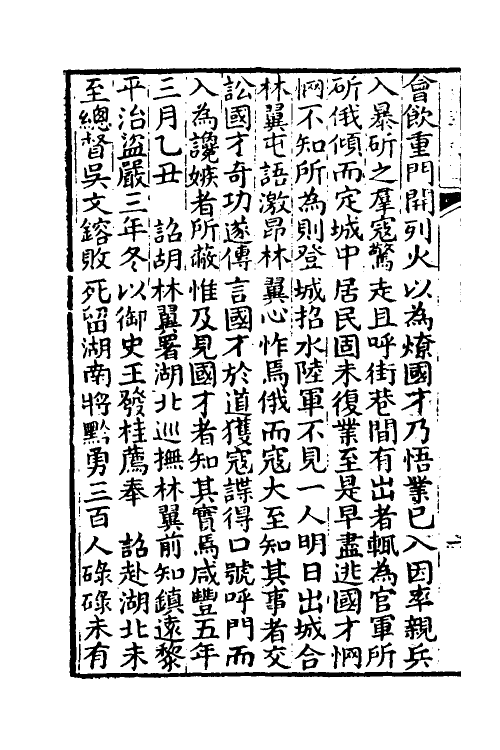 會飲重門開列火以為燎國才乃悟業已入因率親兵
入暴斫之羣寇驚走且呼街巷間有出者輒為官軍所
斫俄傾而定城中居民固未復業至是早盡逃國才惘
惘不知所為則登城招水陸軍不見一人明日出城合
林翼屯語激昂林翼心怍焉俄而寇大至知其事者交
訟國才奇功遂傳言國才於道獲寇諜得口號呼門而
入為讒嫉者所蔽惟及見國才者知其實焉咸豐五年
三月乙丑　詔胡林翼署湖北巡撫林翼前知鎮遠黎
平治盜嚴三年冬以御史王發桂薦奉　詔赴湖北未
至總督吳文鎔敗死留湖南將黔勇三百人碌碌未有